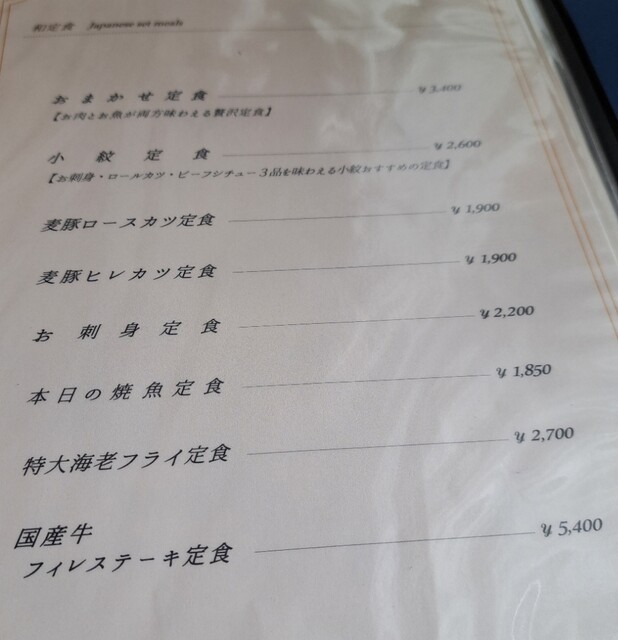 和定食 Japanese set meals
おまかせ定食 ¥3,400
【お肉とお魚が両方味わえる贅沢定食】
小紋定食 ¥2,600
【お刺身・ロールカツ・ビーフシチュー3品を味わえる小紋おすすめの定食】
麦豚ロースカツ定食 ¥1,900
麦豚ヒレカツ定食 ¥1,900
お刺身定食 ¥2,200
本日の焼魚定食 ¥1,850
特大海老フライ定食 ¥2,700
国産牛
フィレステーキ定食 ¥5,400